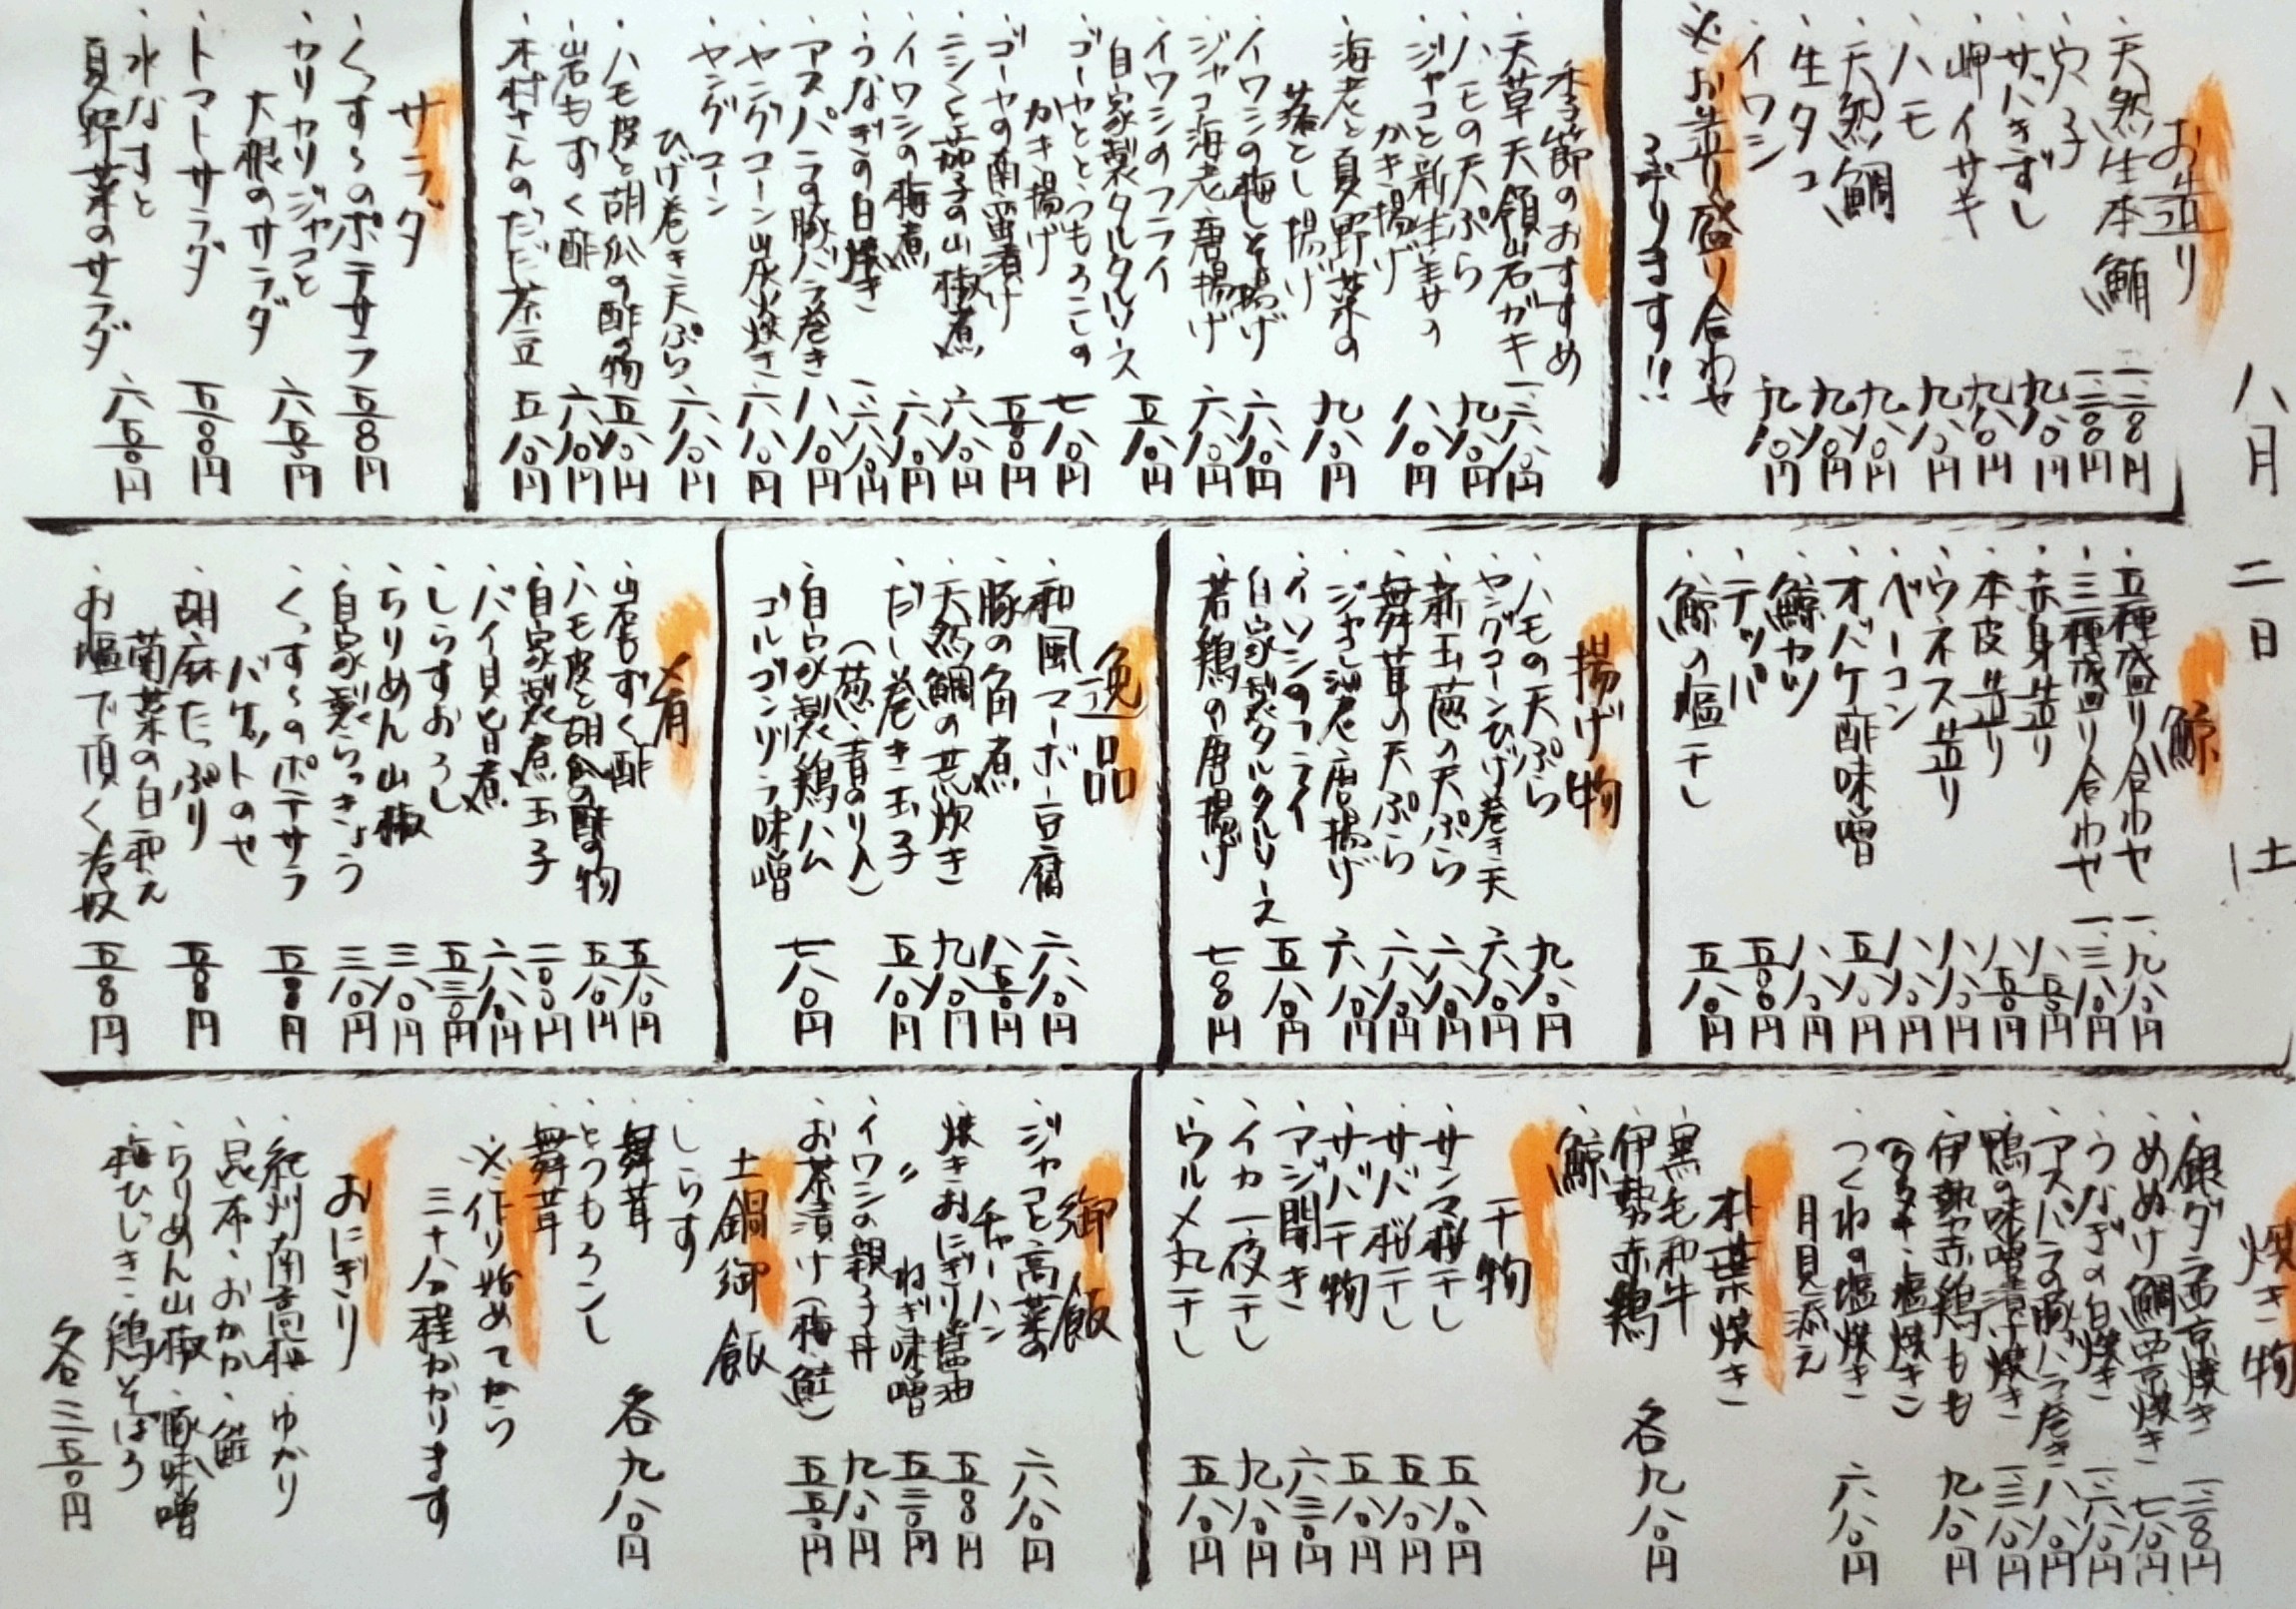 八月二日 土
お造り
・天然生本鮪 一、二〇〇円
・穴子 一、二〇〇円
・サバきずし 九八〇円
・岬イサキ 九八〇円
・ハモ 九八〇円
・天然鯛 九八〇円
・生タコ 九八〇円
・イワシ 九八〇円
※お造り盛り合わせ
つぎります!!
季節のおすすめ
・天草天領岩ガキ 一、二八〇円
・ハモの天ぷら 九八〇円
・ジャコと新生姜の
かき揚げ 八八〇円
・海老と夏野菜の
落とし揚げ 九八〇円
・イワシの梅しそ揚げ 六八〇円
・ジャコ海老唐揚げ 六八〇円
・イワシのフライ
自家製タルタルソース 五八〇円
・ゴーヤととうもろこしの
かき揚げ 七八〇円
・ゴーヤの南蛮漬け 五〇〇円
・ニシンと茄子の山椒煮 六八〇円
・イワシの梅煮 六八〇円
・うなぎの白焼き 一、二八〇円
・アスパラの豚バラ巻き 八八〇円
・ヤングコーン炭火焼き 六八〇円
・ヤングコーン
ひげ巻き天ぷら 六八〇円
・ハモ皮と胡瓜の酢の物 五八〇円
・岩もずく酢 六八〇円
・木村さんのだだ茶豆 五八〇円
サラダ
・くっす〜のポテサラ 五〇〇円
・カリカリジャコと
大根のサラダ 六五〇円
・トマトサラダ 五〇〇円
・水なすと
夏野菜のサラダ 六五〇円
鯨
・五種盛り合わせ 一、九八〇円
・三種盛り合わせ 一、三八〇円
・赤身造り 八五〇円
・本皮造り 八五〇円
・ウネス造り 八八〇円
・ベーコン 八八〇円
・オバケ酢味噌 五八〇円
・鯨カツ 八八〇円
・テッパ 五〇〇円
・鯨の塩干し 五八〇円
揚げ物
・ハモの天ぷら 九八〇円
・ヤングコーンひげ巻き天 六八〇円
・新玉葱の天ぷら 六八〇円
・舞茸の天ぷら 六八〇円
・ジャコ海老唐揚げ 六八〇円
・イワシのフライ
自家製タルタルソース 五八〇円
・若鶏の唐揚げ 七〇〇円
逸品
・和風マーボー豆腐 六八〇円
・豚の角煮 八五〇円
・天然鯛の荒炊き 九八〇円
・だし巻き玉子
(葱、青のり入) 五八〇円
・自家製鶏ハム
ゴルゴンゾラ味噌 七八〇円
肴
・岩もずく酢 五八〇円
・ハモ皮と胡瓜の酢の物 五八〇円
・自家製煮玉子 二〇〇円
・バイ貝旨煮 六八〇円
・しらすおろし 五三〇円
・ちりめん山椒 三八〇円
・自家製らっきょう 三八〇円
・くっす〜のポテサラ
バケットのせ 五〇〇円
・胡麻たっぷり
菊菜の白和え 五〇〇円
・お塩で頂く冷奴 五〇〇円
焼き物
・銀ダラ西京焼き 一、二〇〇円
・めぬけ鯛西京焼き 七八〇円
・うなぎの白焼き 一、二八〇円
・アスパラの豚バラ巻き 八八〇円
・鴨の味噌漬け焼き 一、三八〇円
・伊勢赤鶏もも
(タタキ・塩焼き) 九八〇円
・つくねの塩焼き
月見添え 六八〇円
朴葉焼き
・黒毛和牛
・伊勢赤鶏
・鯨
各九八〇円
干物
・サンマ桜干し 五八〇円
・サバ桜干し 五八〇円
・サバ干物 五八〇円
・アジ開き 六三〇円
・イカ一夜干し 九八〇円
・ウルメ丸干し 五八〇円
御飯
・ジャコと高菜の
チャーハン 六八〇円
・焼きおにぎり醤油 五〇〇円
・〃 ねぎ味噌 五三〇円
・イワシの親子丼 九八〇円
・お茶漬け(梅・鮭) 五五〇円
土鍋御飯
・しらす
・舞茸
・とうもろこし
・舞茸
各九八〇円
※作り始めてから
三十分程かかります
おにぎり
・紀州南高梅・ゆかり
・昆布・おかか・鮭
・ちりめん山椒・豚味噌
・梅ひじき・鶏そぼろ
各三五〇円